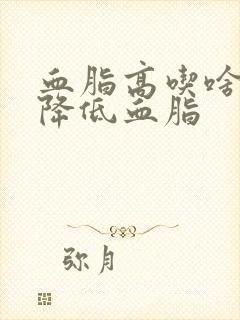 血脂高喫啥
降低血脂
弥月